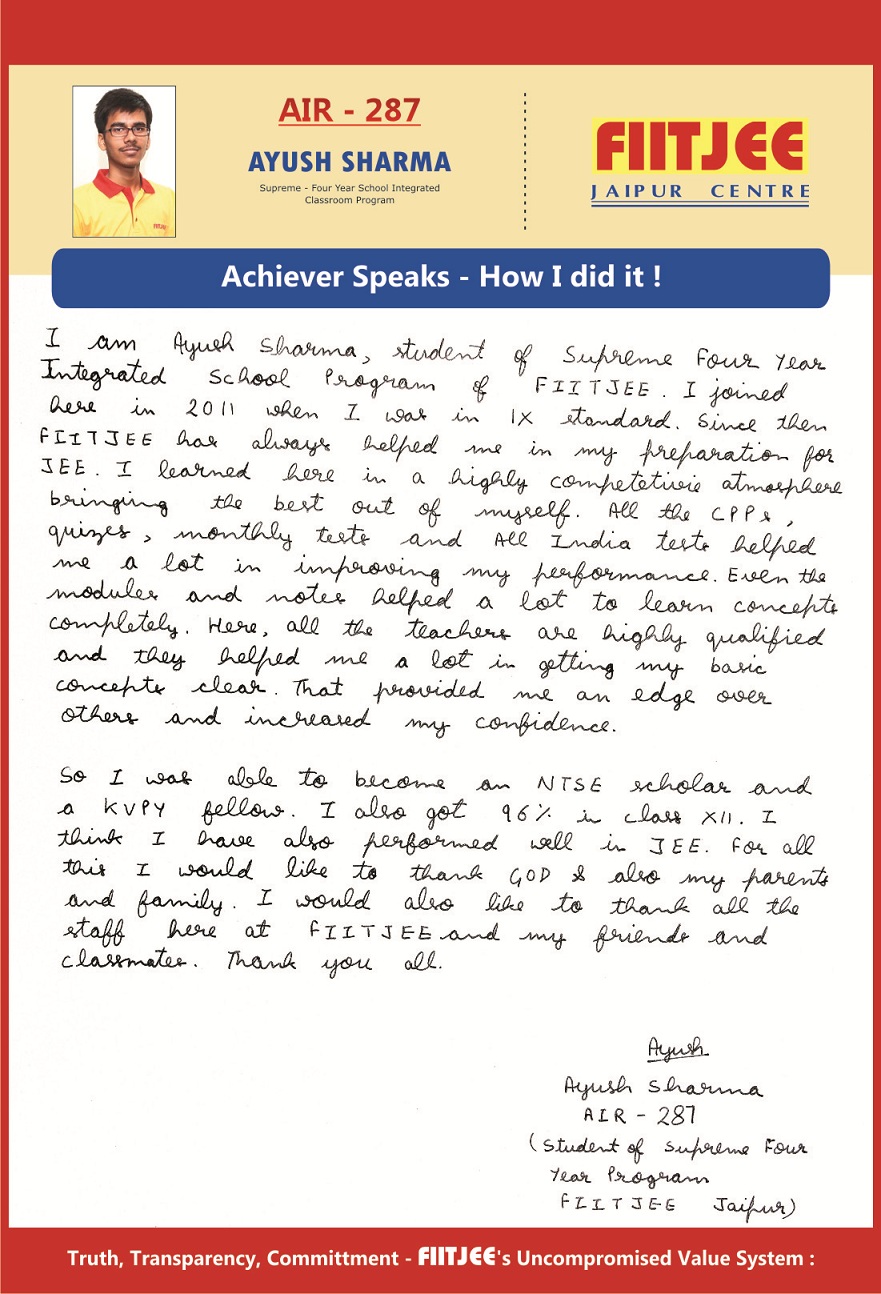 AIR - 287
AYUSH SHARMA
Supreme - Four Year School Integrated
Classroom Program
FIITJEE
JAIPUR CENTRE
FIITJEE
Achiever Speaks - How I did it !
I am Ayush Sharma, student of Supreme Four Year
Integrated School Program of FIITJEE. I joined
here in 2011 when I was in IX standard. Since then
FIITJEE has always helped me in my preparation for
JEE. I learned here in a highly competetivie atmosphere
bringing the best out of myself. All the CPPs,
quizes, monthly tests and All India tests helped
me a lot in improving my performance. Even the
modules and notes helped a lot to learn concepts
completely. Here, all the teachers are highly qualified
and they helped me a lot in getting my basic
concepts clear. That provided me an edge over
others and increased my confidence.
So I was able to become an NTSE scholar and
a KVPY fellow. I also got 96% in class XII. I
think I have also performed well in JEE. For all
this I would like to thank GOD & also my parents
and family. I would also like to thank all the
staff here at FIITJEE and my friends and
classmates. Thank you all.
Ayush
Ayush Sharma
AIR - 287
(Student of Supreme Four
Year Program
FIITJEE Jaipur)
Truth, Transparency, Committment - FIITJEE's Uncompromised Value System :